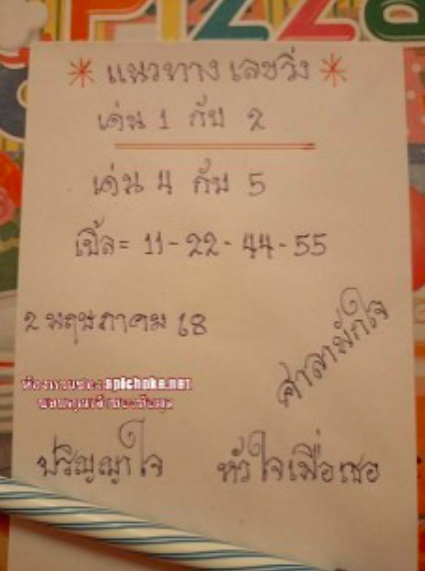 PIZZA
* แนวทาง เลขวิ่ง *
เด่น 1 กับ 2
เด่น 4 กับ 5
เบิ้ล = 11 - 22 - 44 - 55
2 พฤษภาคม 68
ศาลาพักใจ
apichoke.net
ปริญญาใจ หัวใจเพื่อเธอ